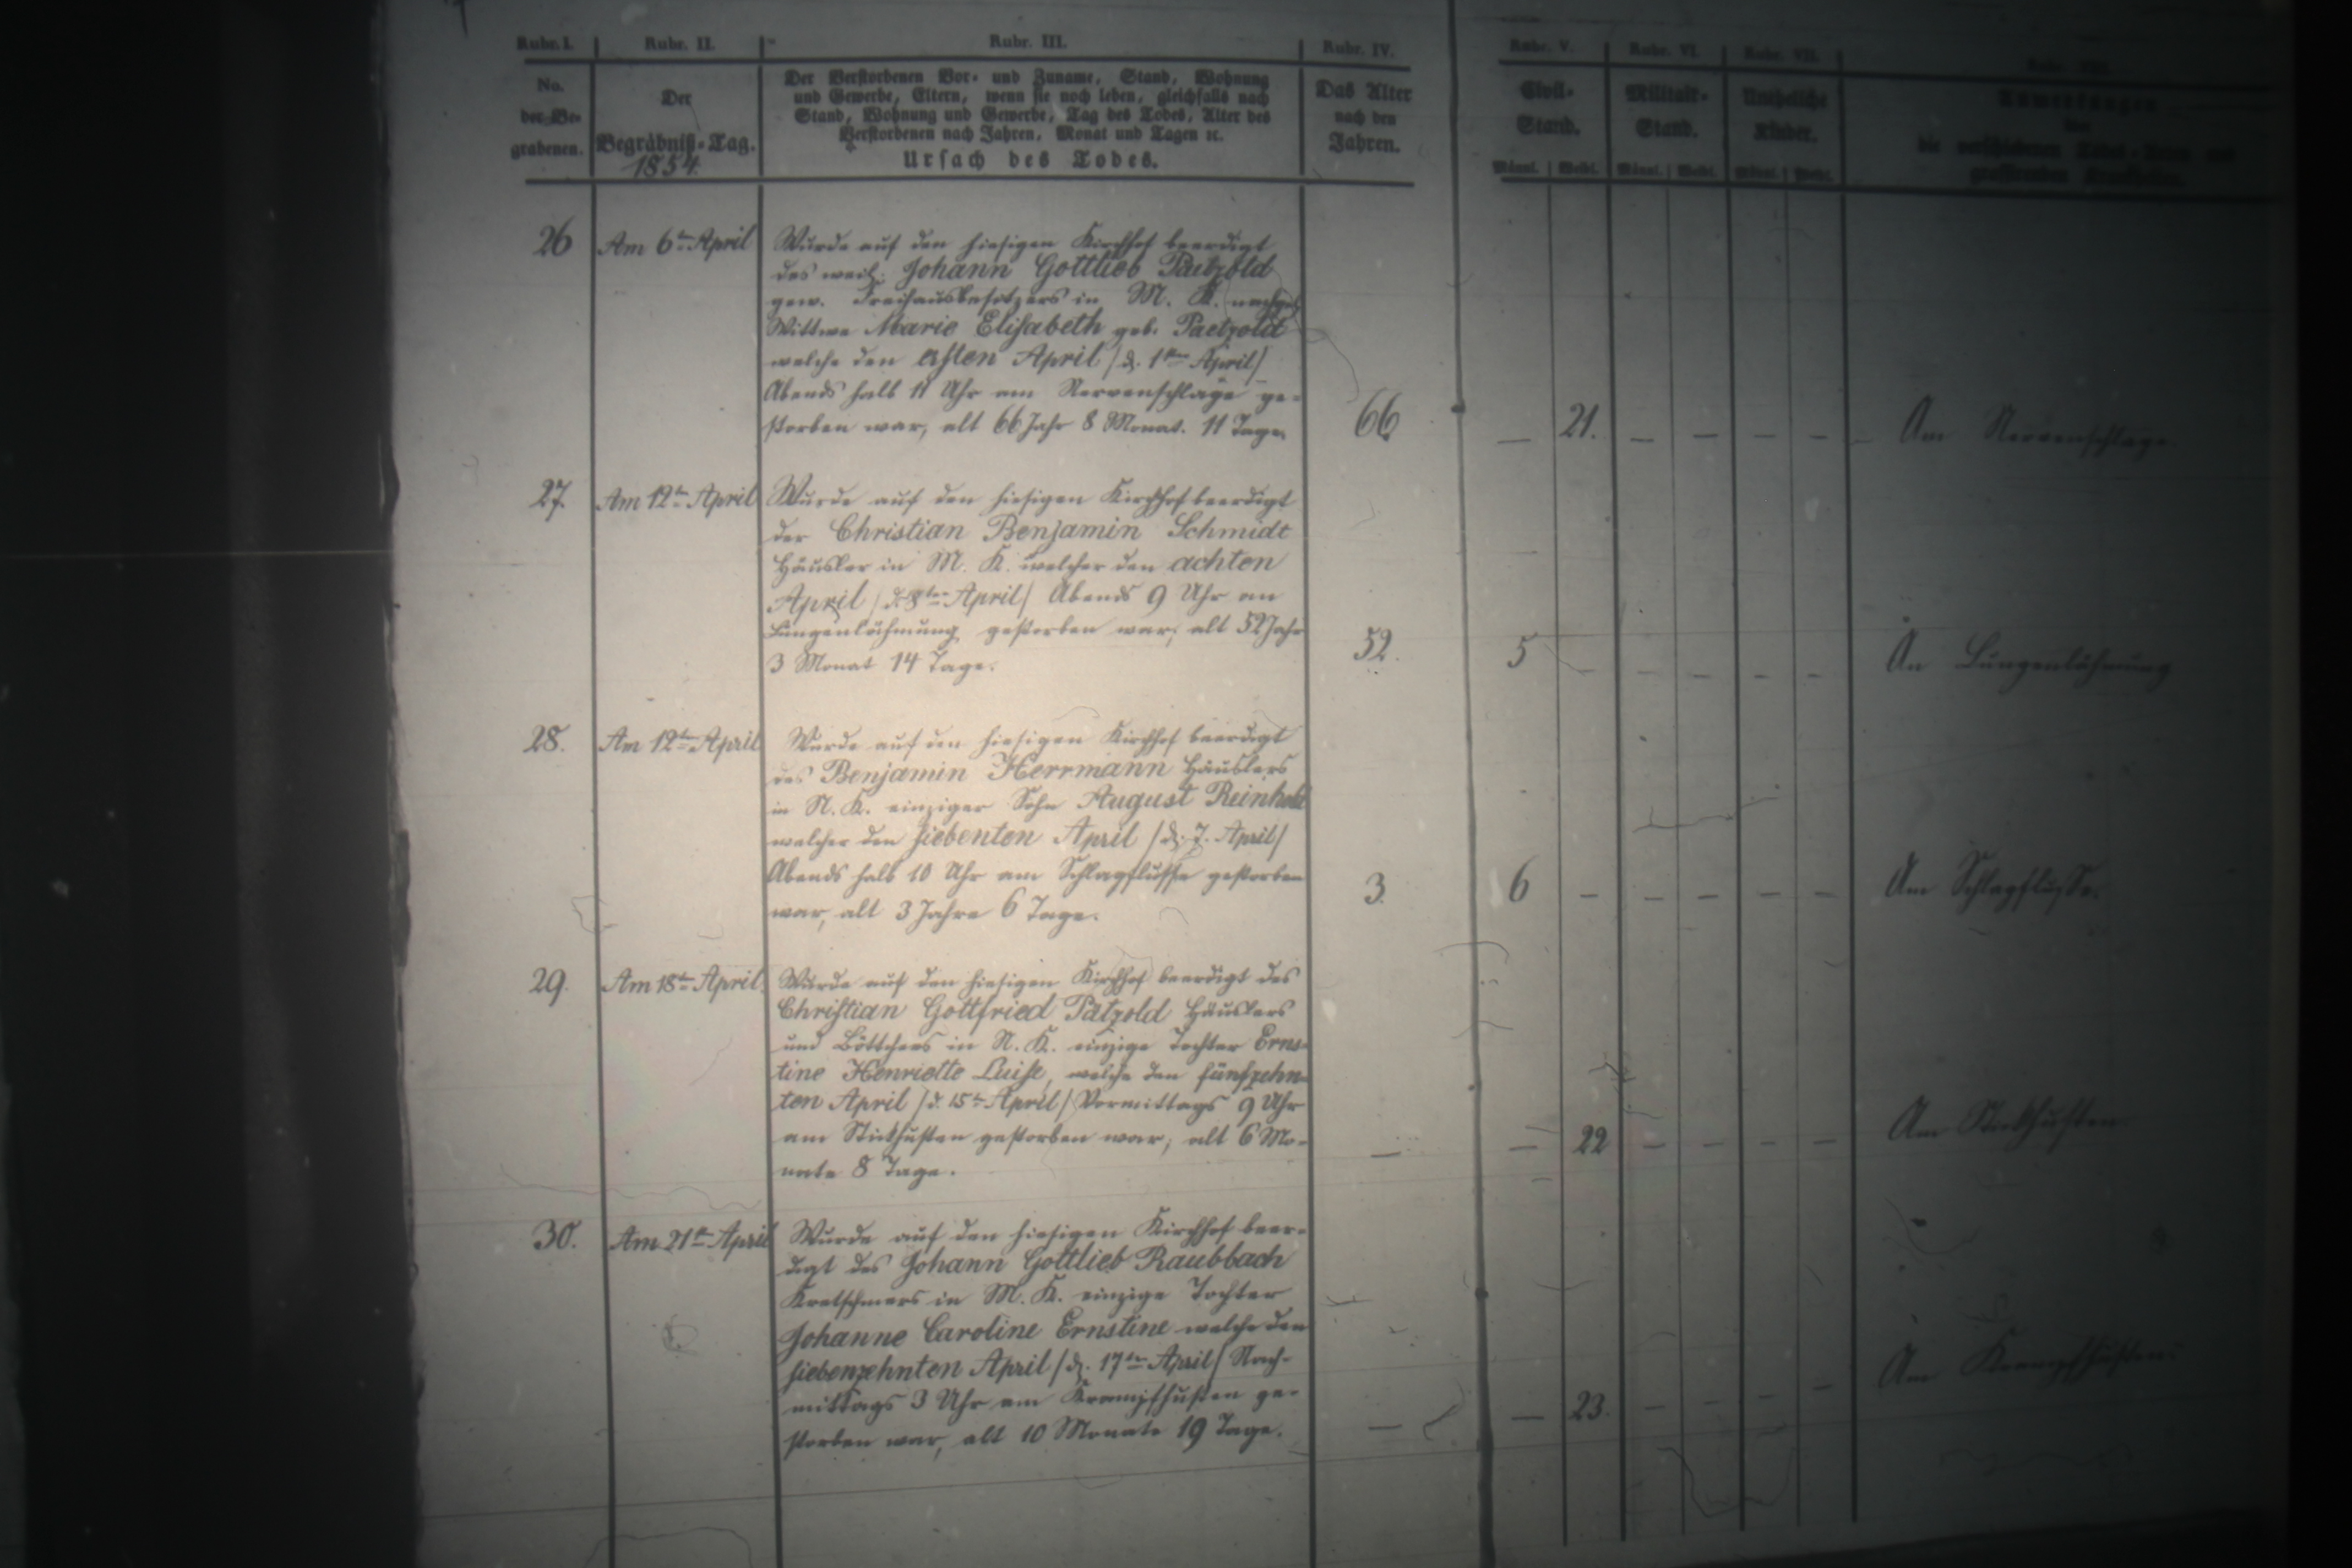 Rubr. I. Rubr. II. Rubr. III. Rubr. IV. Rubr. V. Rubr. VI. Rubr. VII.
No.
der Be-
grabenen.
Der
Begräbniß-Tag.
1854.
Der Verstorbenen Vor- und Zuname, Stand, Wohnung
und Gewerbe, Eltern, wenn sie noch leben, gleichfalls nach
Stand, Wohnung und Gewerbe, Tag des Todes, Alter des
Verstorbenen nach Jahren, Monat und Tagen ꝛc.
Ursach des Todes.
Das Alter
nach den
Jahren.
Civil-
Stand.
Männl. Weibl.
Militair-
Stand.
Männl. Weibl.
Uneheliche
Kinder.
Männl. Weibl.
die verschiedenen Todes-Arten und
grassirenden Krankheiten.
26 Am 6ten April
Wurde auf den hiesigen Kirchhof beerdigt
des weil. Johann Gottlieb Paetzold
gew. Freihausbesitzers in M. K. nachgel.
Wittwe Marie Elisabeth geb. Paetzold
welche den ersten April / d. 1ten April /
Abends halb 11 Uhr am Nervenschlage ge-
storben war, alt 66 Jahr 8 Monat. 11 Tage.
66 — 21. — — — — Am Nervenschlage
27. Am 12ten April
Wurde auf den hiesigen Kirchhof beerdigt
der Christian Benjamin Schmidt
Häusler in M. K. welcher den achten
April / d. 8ten April / Abends 9 Uhr an
Lungenlähmung gestorben war; alt 52 Jahr
3 Monat 14 Tage.
52. 5 — — — — — An Lungenlähmung
28. Am 12ten April
Wurde auf den hiesigen Kirchhof beerdigt
des Benjamin Herrmann Häuslers
in N. K. einziger Sohn August Reinhold
welcher den siebenten April / d. 7. April /
Abends halb 10 Uhr am Schlagflusse gestorben
war, alt 3 Jahre 6 Tage.
3. 6 — — — — — Am Schlagflusse.
29. Am 18ten April.
Wurde auf den hiesigen Kirchhof beerdigt des
Christian Gottfried Pätzold Häuslers
und Böttchers in N. K. einzige Tochter Erns-
tine Henriette Luise, welche den fünfzehn-
ten April / d. 15ten April / Vormittags 9 Uhr
am Stickhusten gestorben war; alt 6 Mo-
nate 8 Tage.
— — 22 — — — — Am Stickhusten
30. Am 21ten April
Wurde auf den hiesigen Kirchhof beer-
digt des Johann Gottlieb Raubbach
Kretschmers in M. K. einzige Tochter
Johanne Caroline Ernstine welche den
siebenzehnten April / d. 17ten April / Nach-
mittags 3 Uhr am Krampfhusten ge-
storben war, alt 10 Monate 19 Tage.
— — 23. — — — — Am Krampfhusten.